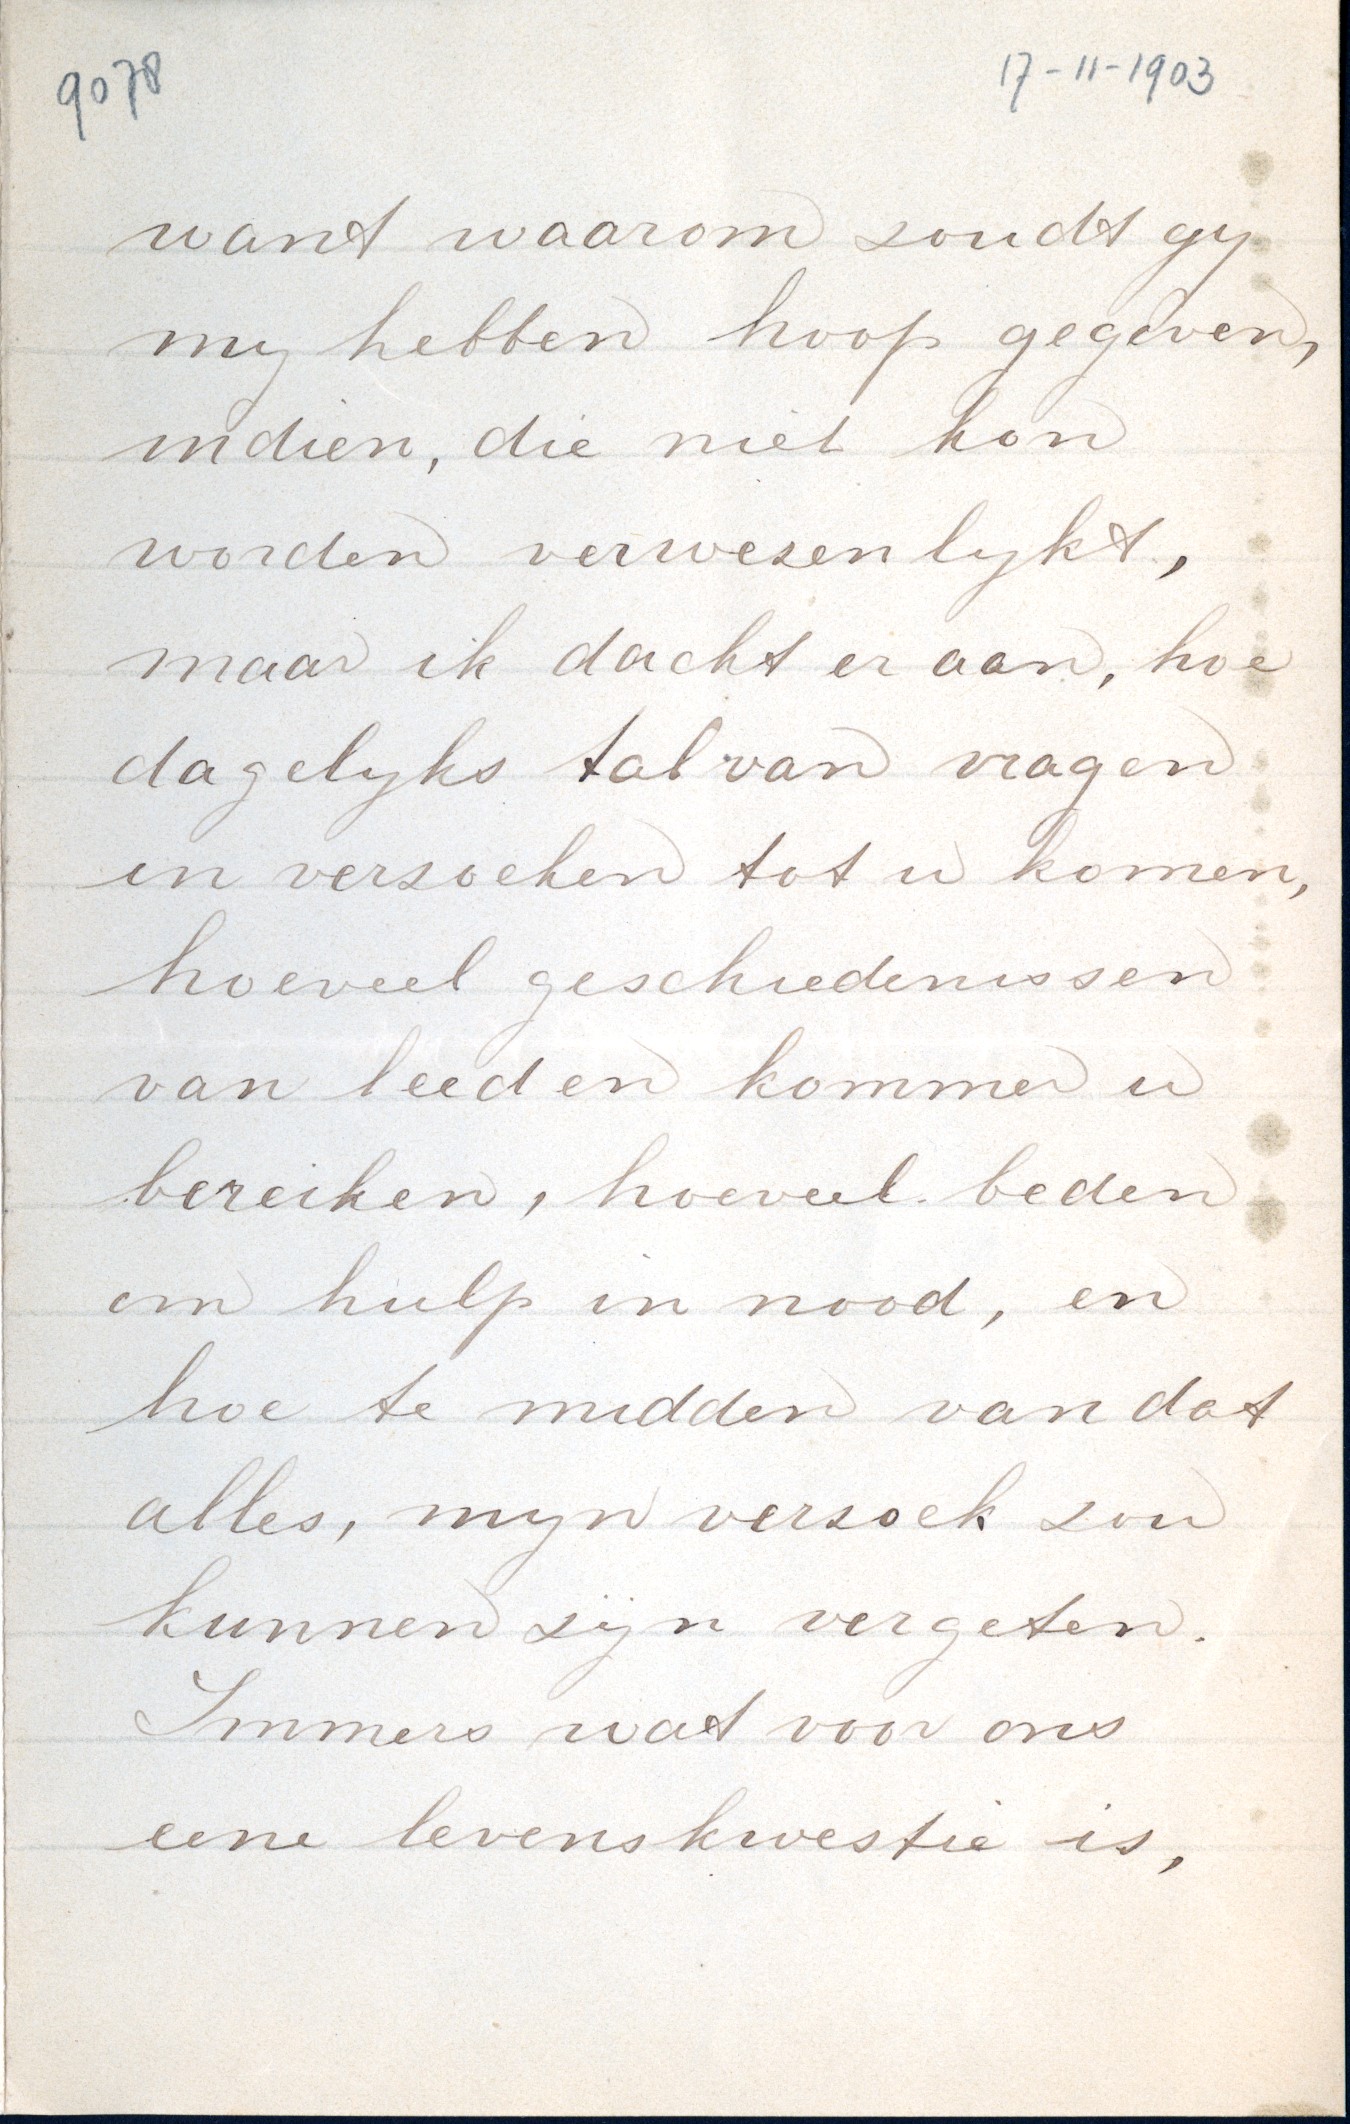 9078
17-11-1903
want waarom zoudt gy
my hebben hoop gegeven,
indien, die niet kon
worden verwezenlykt,
maar ik dacht er aan, hoe
dagelyks tal van vragen
en verzoeken tot u komen,
hoeveel geschiedenissen
van leed en kommer u
bereiken, hoeveel beden
om hulp in nood, en
hoe te midden van dat
alles, myn verzoek zou
kunnen zijn vergeten.
Immers wat voor ons
eene levenskwestie is,